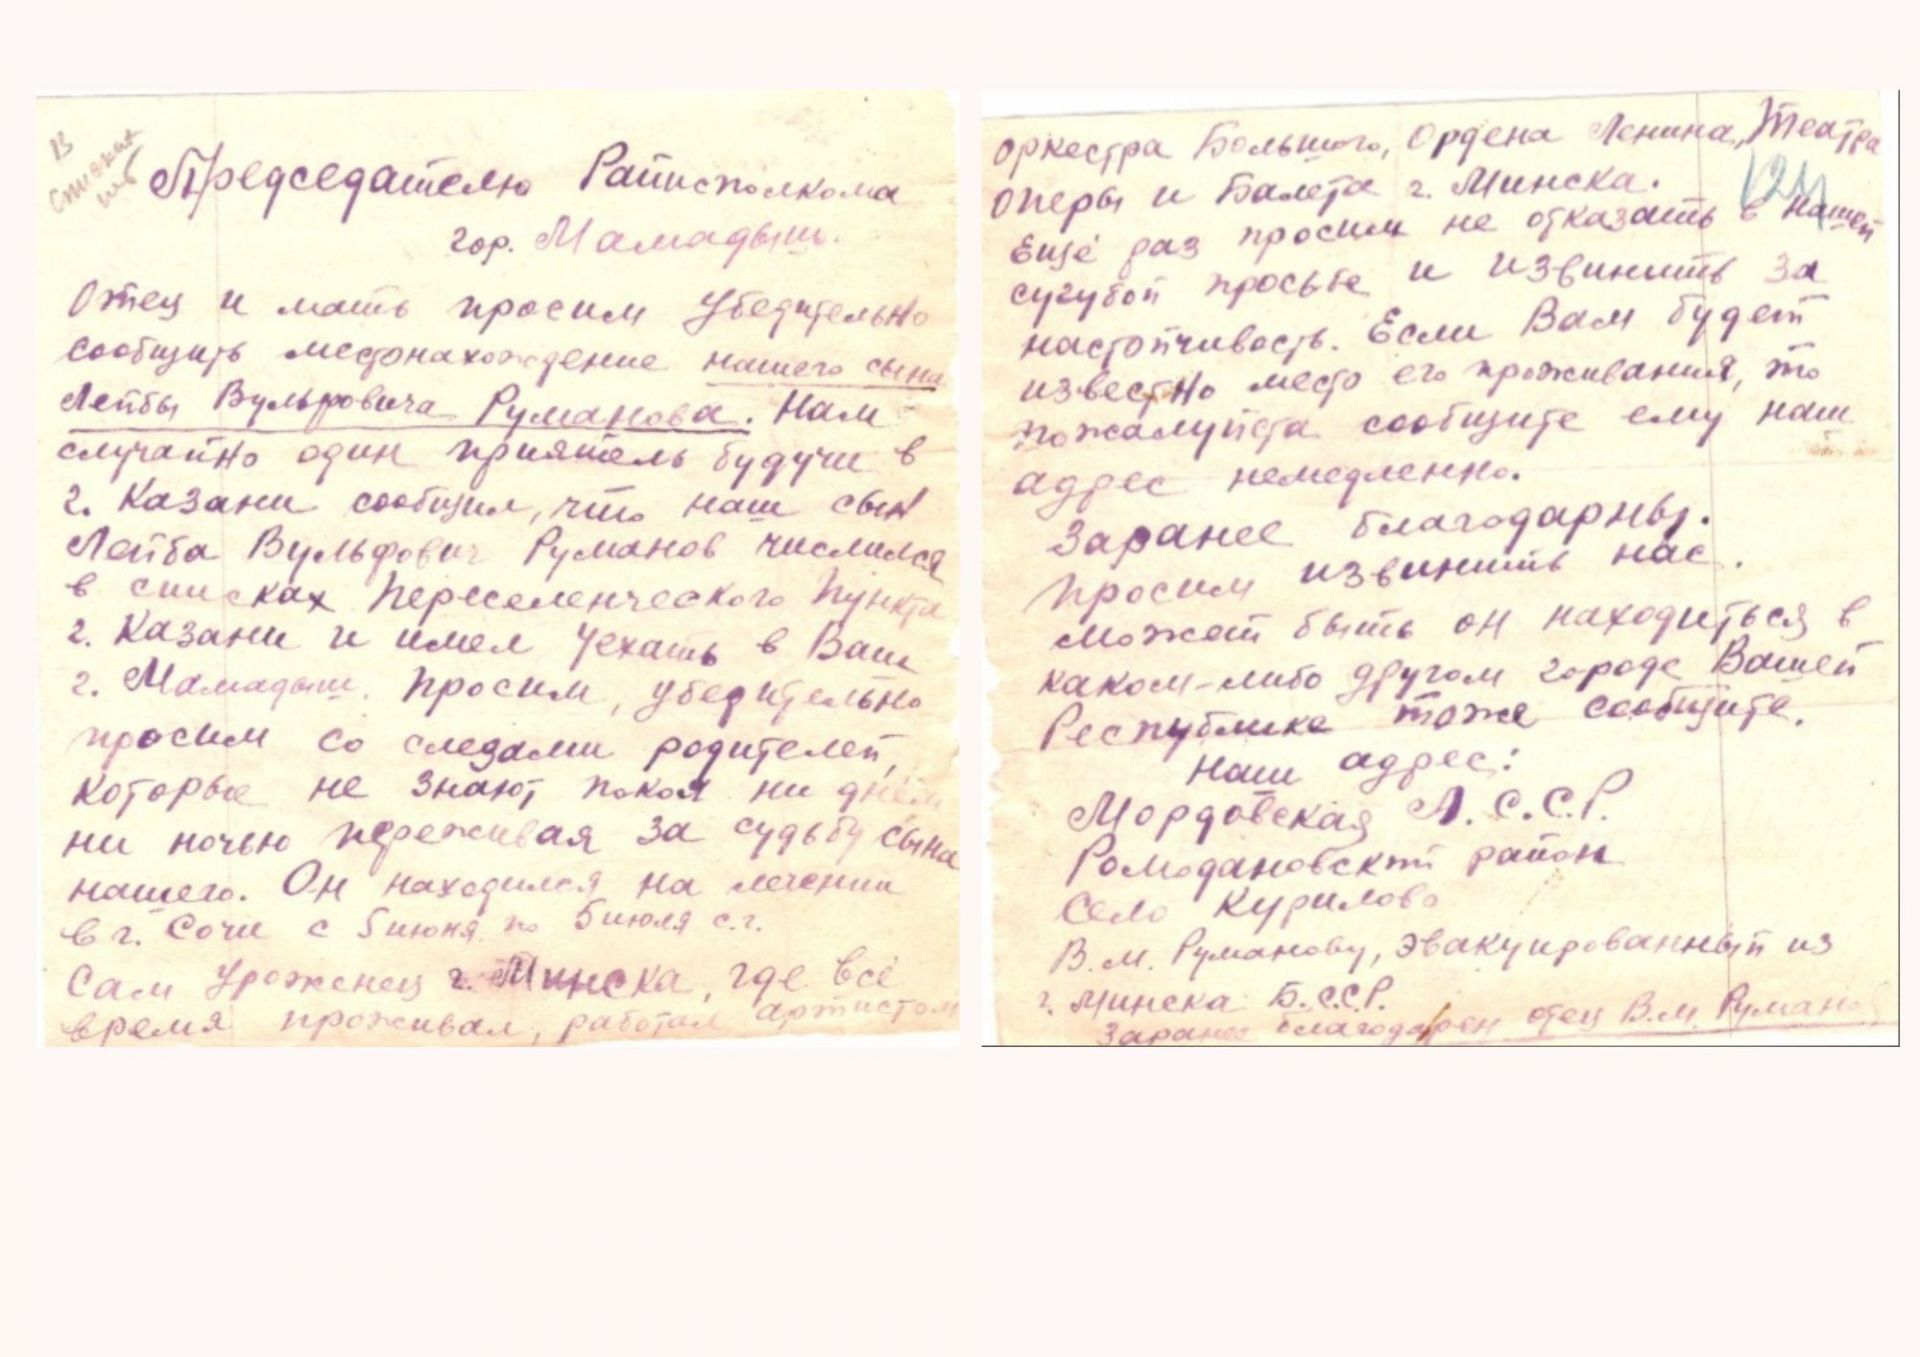 В
Председателю Райисполкома
гор. Мамадыш.
Отец и мать просим убедительно
сообщить местонахождение нашего сына
Лейбы Вульфовича Руманова. Нам
случайно один приятель будучи в
г. Казани сообщил, что наш сын
Лейба Вульфович Руманов числился
в списках Переселенческого Пункта
г. Казани и имел уехать в Ваш
г. Мамадыш. Просим, убедительно
просим со слезами родителей,
которые не знают покоя ни днем
ни ночью переживая за судьбу сына
нашего. Он находился на лечении
в г. Сочи с 5 июня по 5 июля с.г.
Сам Уроженец г. Минска, где всё
время проживал, работал артистом
оркестра Большого, Ордена Ленина, Театра
оперы и Балета г. Минска.
124
Ещё раз просим не отказать в нашей
сугубой просьбе и извинить за
настойчивость. Если Вам будет
известно место его проживания, то
пожалуйста сообщите ему наш
адрес немедленно.
Заранее благодарны.
Просим извинить нас.
может быть он находиться в
каком-либо другом городе Вашей
Республике тоже сообщите.
Наш адрес:
Мордовская А.С.С.Р.
Ромодановский район
село Курилово
В.М. Руманову, эвакуированный из
г. Минска Б.С.С.Р.
Заранее благодарен отец В.М. Руманов